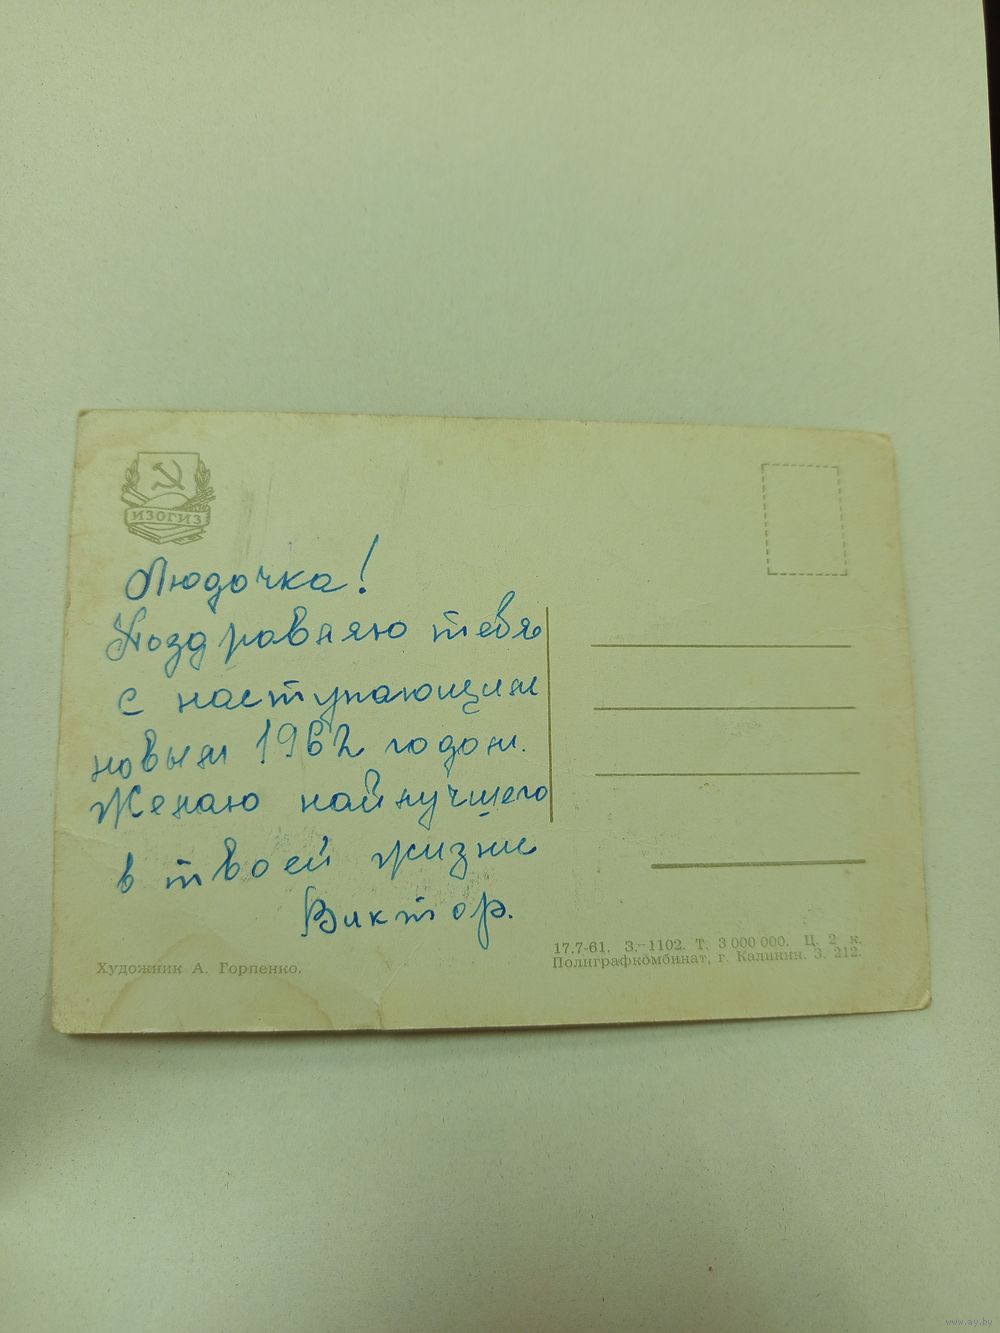 ИЗОГИЗ
Людочка!
Поздравляю тебя
с наступающим
новым 1962 годом.
Желаю найлучшего
в твоей жизни
Виктор.
Художник А. Горпенко.
17.7-61. З.-1102. Т. 3 000 000. Ц. 2 к.
Полиграфкомбинат, г. Калинин. З. 212.
www.ay.by